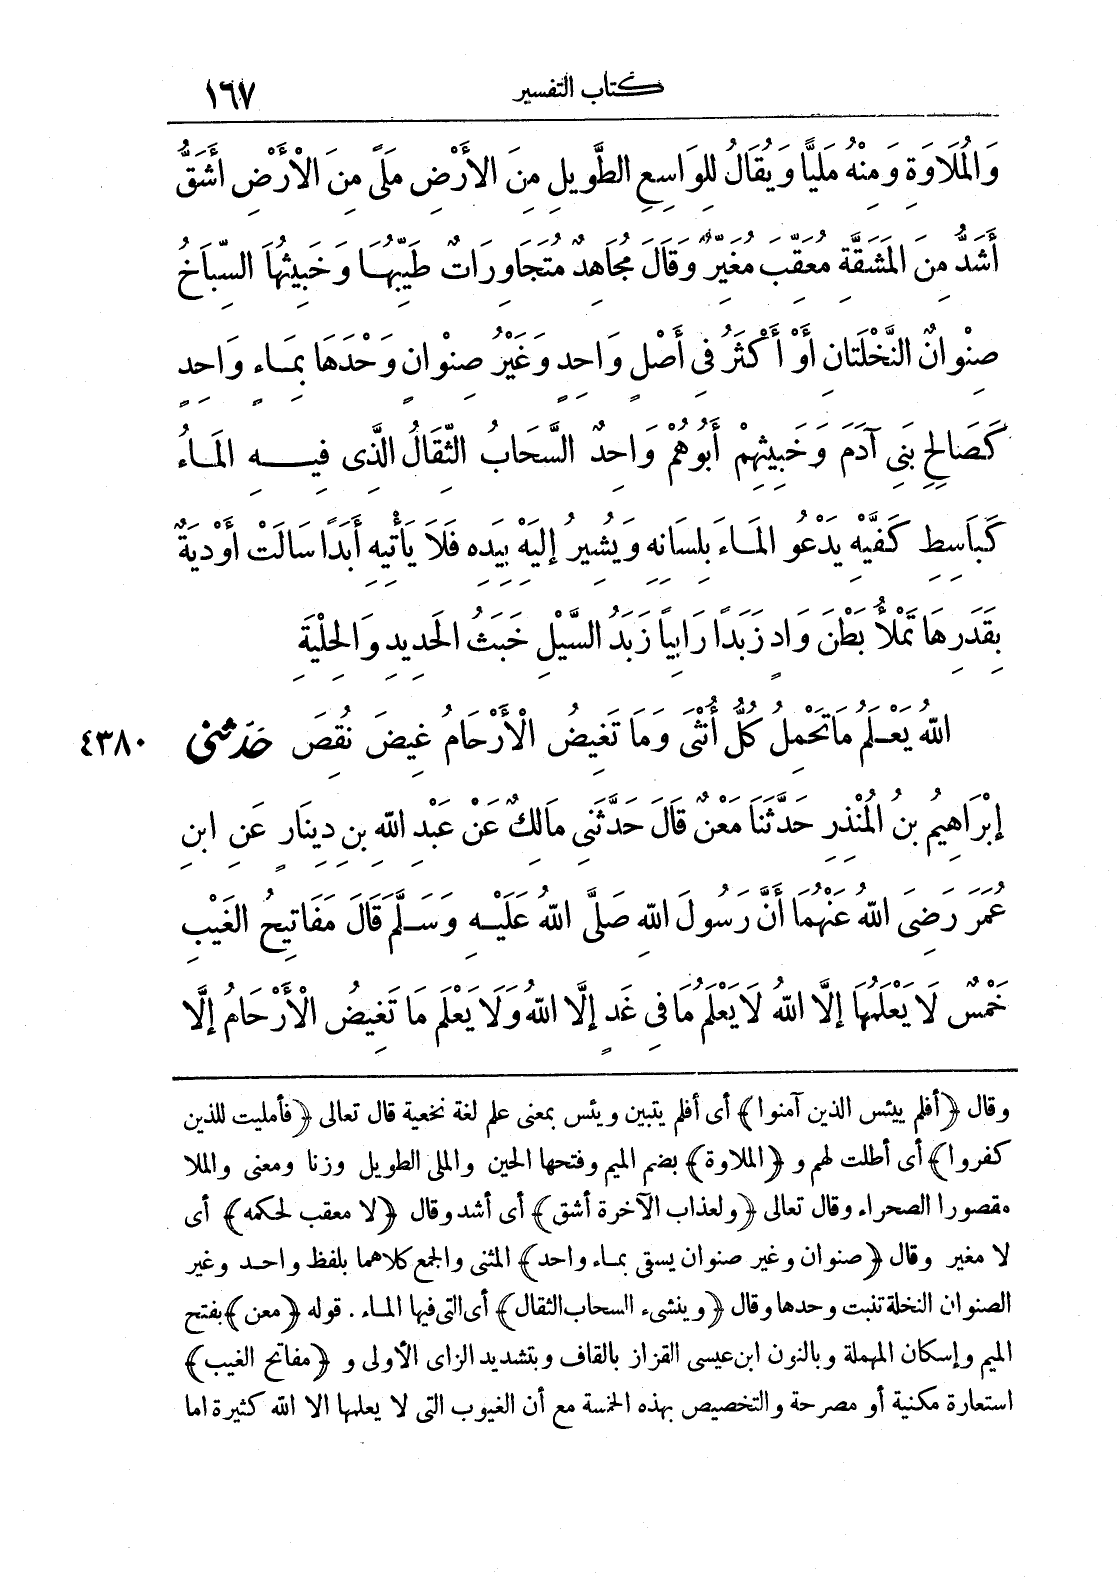 كتاب التفسير ١٦٧
وَالمُلَاوَةِ وَمِنْهُ مَلِيًّا وَيُقَالُ لِلْوَاسِعِ الطَّوِيلِ مِنَ الأَرْضِ مَلًى مِنَ الْأَرْضِ أَشَقُّ
أَشَدُّ مِنَ المَشَقَّةِ مُعَقِّبَ مُغَيِّرٌ وَقَالَ مُجَاهِدٌ مُتَجَاوِرَاتٌ طَيِّبُهَا وَخَبِيثُهَا السِّبَاخُ
صِنْوَانٌ النَّخْلَتَانِ أَوْ أَكْثَرُ فِى أَصْلٍ وَاحِدٍ وَغَيْرُ صِنْوَانٍ وَحْدَهَا بِمَاءٍ وَاحِدٍ
كَصَالِحِ بَنِى آدَمَ وَخَبِيثِهِمْ أَبُوهُمْ وَاحِدٌ السَّحَابُ الثِّقَالُ الَّذِى فِيهِ المَاءُ
كَبَاسِطِ كَفَّيْهِ يَدْعُو المَاءَ بِلِسَانِهِ وَيُشِيرُ إِلَيْهِ بِيَدِهِ فَلَا يَأْتِيهِ أَبَدًا سَالَتْ أَوْدِيَةٌ
بِقَدَرِهَا تَمْلَأُ بَطْنَ وَادٍ زَبَدًا رَابِيًا زَبَدُ السَّيْلِ خَبَثُ الحَدِيدِ وَالحِلْيَةِ
اللهُ يَعْلَمُ مَا تَحْمِلُ كُلُّ أُنْثَى وَمَا تَغِيضُ الْأَرْحَامُ غِيضَ نُقِصَ حَدَّثَنِى ٤٣٨٠
إِبْرَاهِيمُ بنُ المُنْذِرِ حَدَّثَنَا مَعْنٌ قَالَ حَدَّثَنِى مَالِكٌ عَنْ عَبْدِ اللهِ بنِ دِينَارٍ عَنِ ابنِ
عُمَرَ رَضِىَ اللهُ عَنْهُمَا أَنَّ رَسُولَ اللهِ صَلَّى اللهُ عَلَيْهِ وَسَلَّمَ قَالَ مَفَاتِيحُ الغَيْبِ
خَمْسٌ لَا يَعْلَمُهَا إِلَّا اللهُ لَا يَعْلَمُ مَا فِى غَدٍ إِلَّا اللهُ وَلَا يَعْلَمُ مَا تَغِيضُ الْأَرْحَامُ إِلَّا
وقال ﴿أفلم ييئس الذين آمنوا﴾ أى أفلم يتبين ويئس بمعنى علم لغة نخعية قال تعالى ﴿فأمليت للذين
كفروا﴾ أى أطلت لهم و﴿الملاوة﴾ بضم الميم وفتحها الحين والملى الطويل وزنا ومعنى والملا
مقصورا الصحراء وقال تعالى ﴿ولعذاب الآخرة أشق﴾ أى أشد وقال ﴿لا معقب لحكمه﴾ أى
لا مغير وقال ﴿صنوان وغير صنوان يسقى بماء واحد﴾ المثنى والجمع كلاهما بلفظ واحد وغير
الصنوان النخلة تنبت وحدها وقال ﴿وينشىء السحاب الثقال﴾ أى التى فيها الماء . قوله ﴿معن﴾ بفتح
الميم وإسكان المهملة وبالنون ابن عيسى القزاز بالقاف وبتشديد الزاى الأولى و﴿مفاتح الغيب﴾
استعارة مكنية أو مصرحة والتخصيص بهذه الخمسة مع أن الغيوب التى لا يعلمها الا الله كثيرة اما